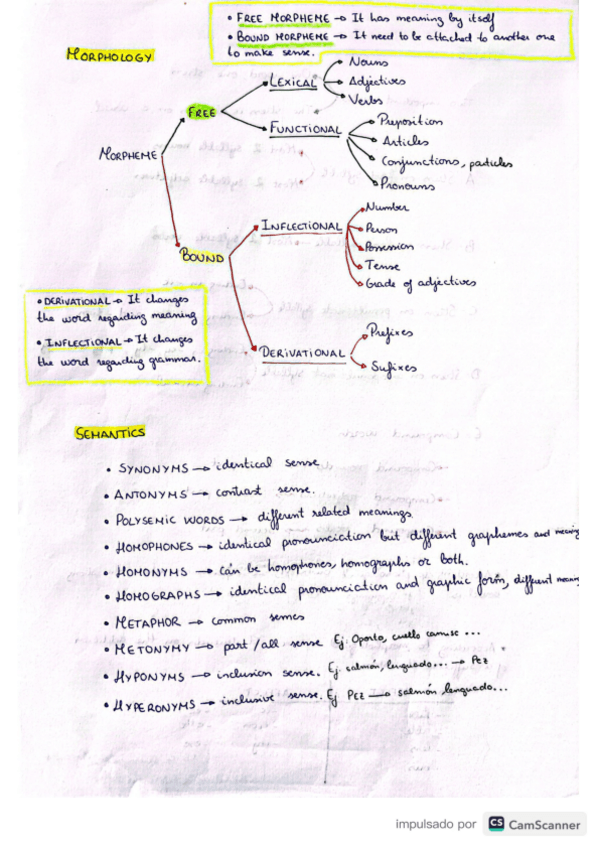 • FREE MORPHEME → It has meaning by itself
• BOUND MORPHEME → It need to be attached to another one
to make sense.
MORPHOLOGY
MORPHEME
FREE
LEXICAL
Nouns
Adjectives
Verbs
FUNCTIONAL
Preposition
Articles
Conjunctions, particles
Pronouns
BOUND
INFLECTIONAL
Number
Person
Possession
Tense
Grade of adjectives
DERIVATIONAL
Prefixes
Sufixes
• DERIVATIONAL → It changes
the word regarding meaning
• INFLECTIONAL → It changes
the word regarding grammar.
SEMANTICS
• SYNONYMS → identical sense
• ANTONYMS → contrast sense.
• POLYSEMIC WORDS → different related meanings
• HOMOPHONES → identical pronounciation but different graphemes and meaning
• HOMONYMS → can be homophones, homographs or both.
• HOMOGRAPHS → identical pronounciation and graphic form, different meaning
• METAPHOR → common semes
• METONYMY → part/all sense Ej. Oporto, cuello camisa ...
• HYPONYMS → inclusion sense. Ej. salmón, lenguado... → Pez
• HYPERONYMS → inclusive sense. Ej Pez → salmón, lenguado...
impulsado por CS CamScanner